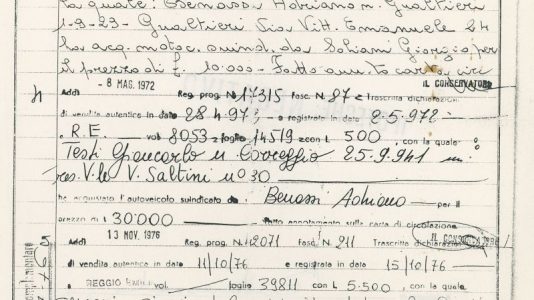 la quale: Benassi Adriano n. Gualtieri
1-9-23 - Gualtieri Via Vitt. Emanuele 24
ha acq. motoc. suind. da Schiani Giorgio per
il prezzo di £ 10.000 - Fatto ann.to carta circ
- 8 MAG. 1972
IL CONSERVATORE
Addì Reg. prog. N. 17315 fasc. N. 87 Trascritta dichiarazione
di vendita autentica in data 28.4.972 e registrata in data 2.5.972
R.E. vol 8053 foglio 14519 con L 500, con la quale
Testi Giancarlo n Correggio 25.9.941 ivi
res. V.le V. Saltini n° 30
ha acquistato l'autoveicolo suindicato da Benassi Adriano per il
prezzo di L 30'000 Fatto annotamento sulla carta di circolazione
13 NOV. 1976
IL CONSERVATORE
Addì Reg. prog. N. 12071 fasc. 211 Trascritta dichiarazione
di vendita autentica in data 11/10/76 e registrata in data 15/10/76
REGGIO EMILIA vol. foglio 39811 con L 5.500, con la quale